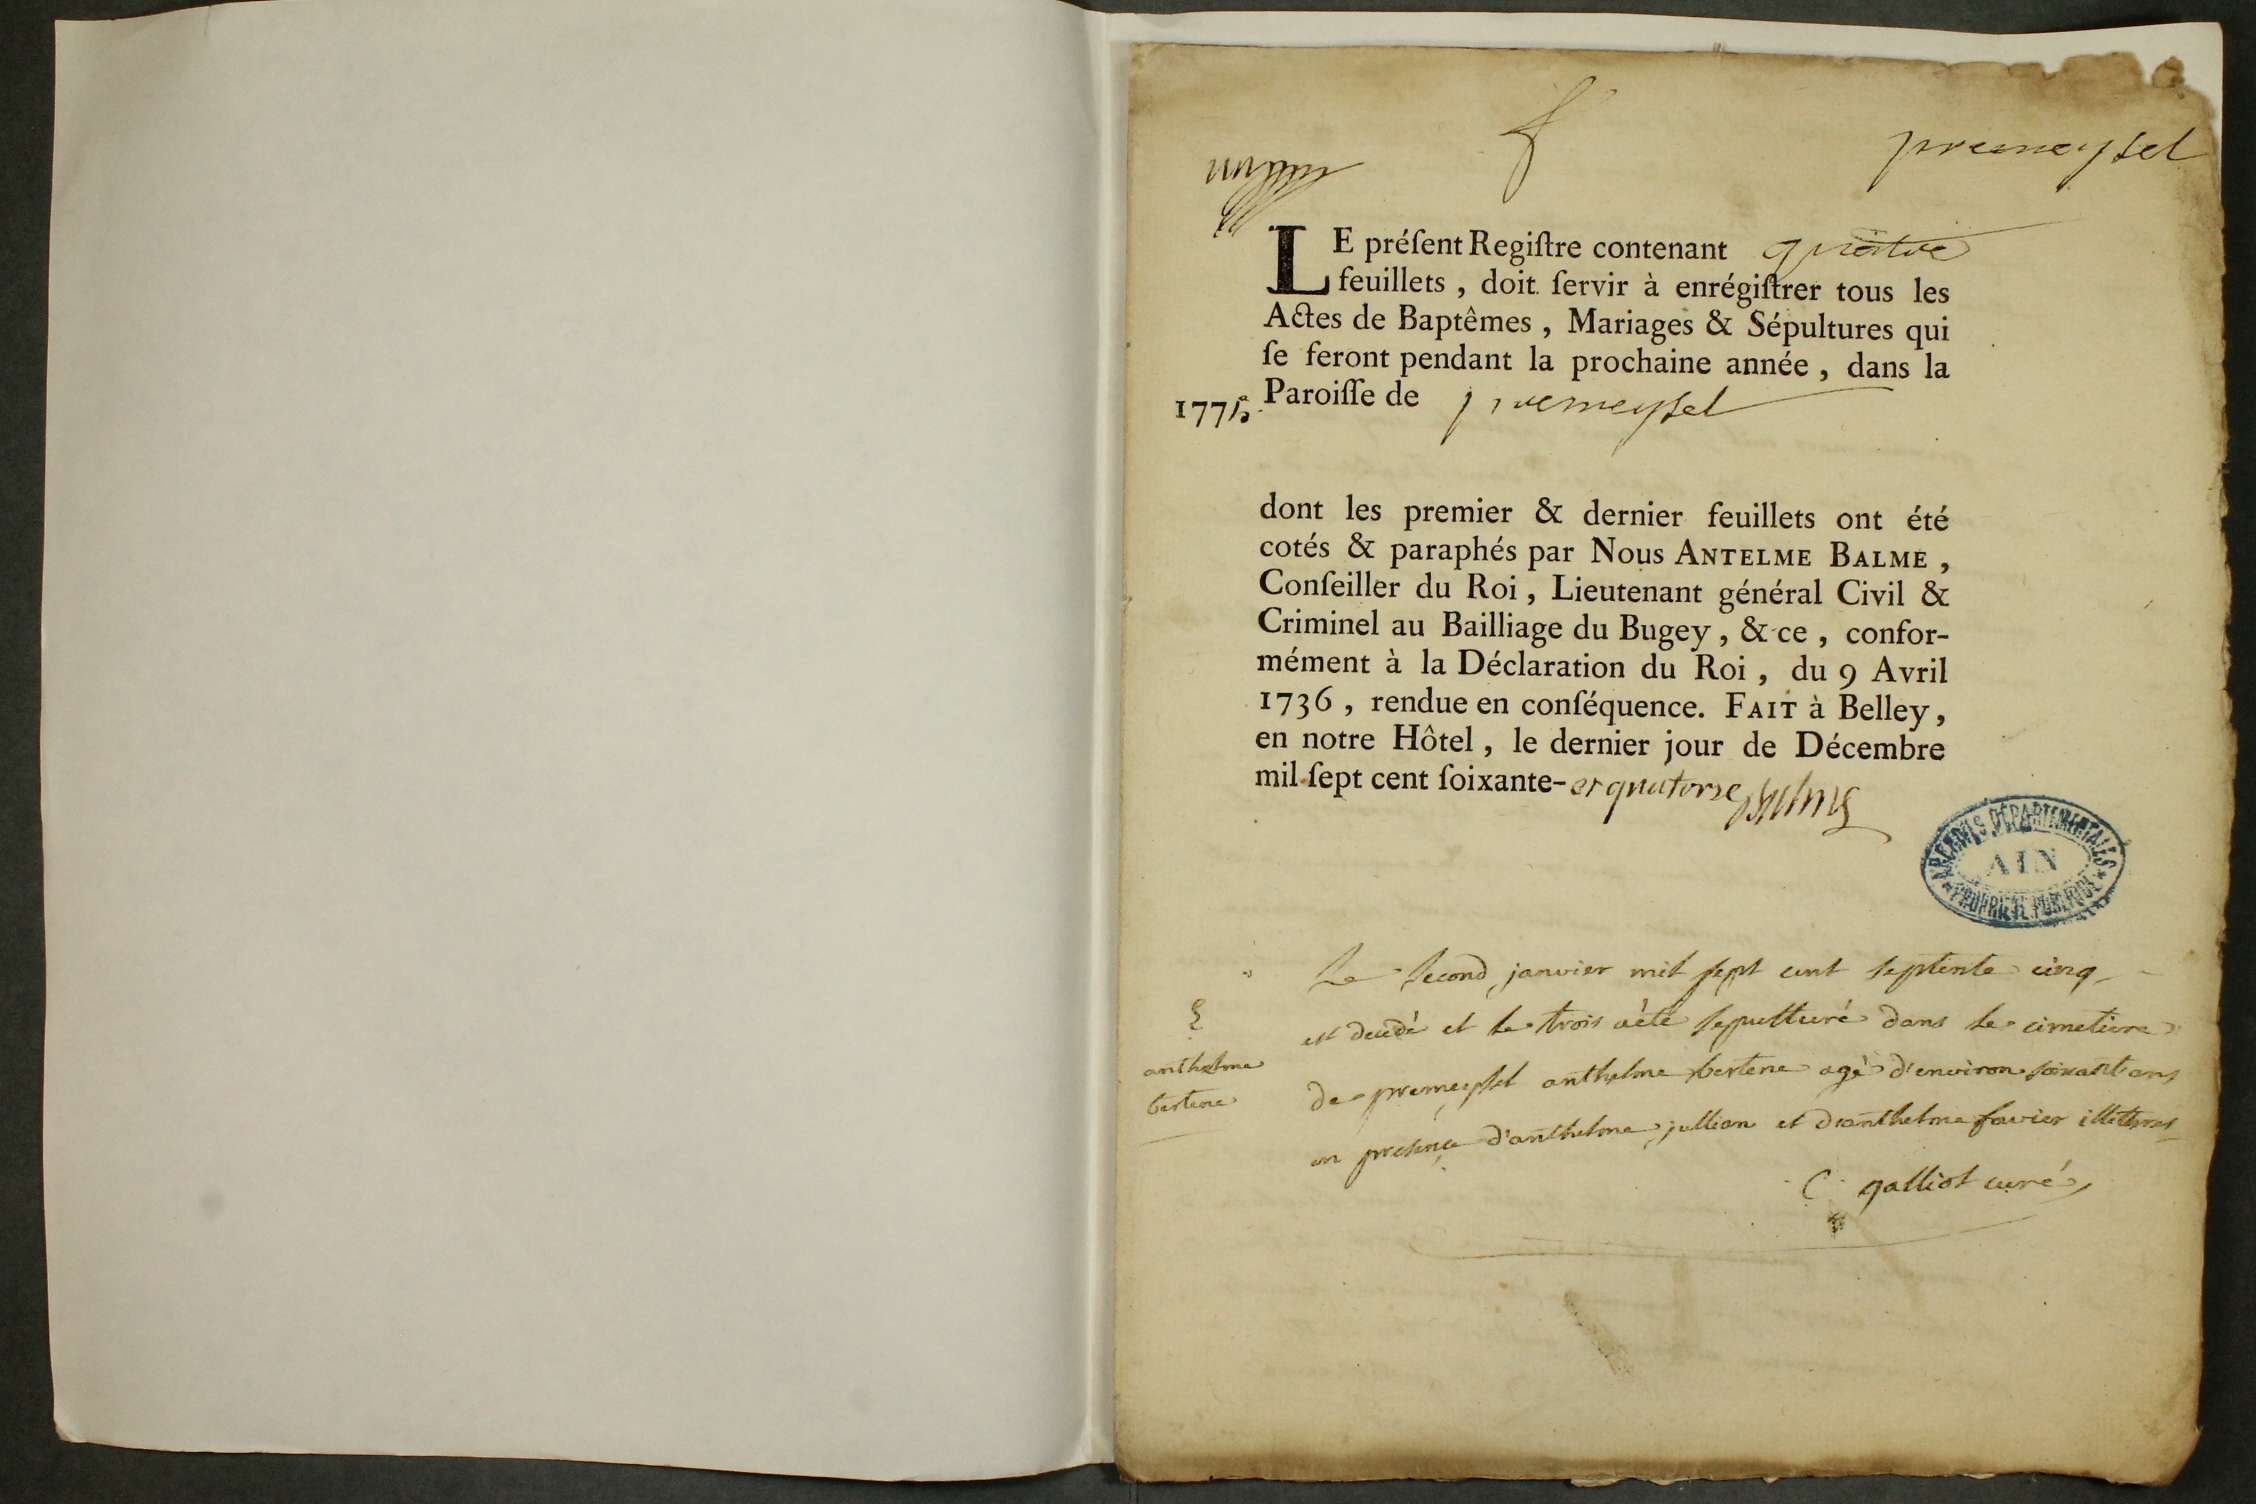 premeysel
LE préſent Regiſtre contenant quatre
feuillets, doit ſervir à enrégiſtrer tous les
Actes de Baptêmes, Mariages & Sépultures qui
ſe feront pendant la prochaine année, dans la
1775. Paroiſſe de premeysel
dont les premier & dernier feuillets ont été
cotés & paraphés par Nous ANTELME BALME,
Conſeiller du Roi, Lieutenant général Civil &
Criminel au Bailliage du Bugey, & ce, confor-
mément à la Déclaration du Roi, du 9 Avril
1736, rendue en conſéquence. FAIT à Belley,
en notre Hôtel, le dernier jour de Décembre
mil ſept cent ſoixante- et quatorze Balme
ARCHIVES DÉPARTEMENTALES
AIN
PROPRIÉTÉ PUBLIQUE
Le second janvier mil sept cent septente cinq
est decedé et le trois a été sepulturé dans le cimetiere
anthelme
bertene
de premeysel anthelme bertene agé d'environ soixant ans
en presence d'anthelme jullian et d'anthelme favier illetterés
C galliot curé